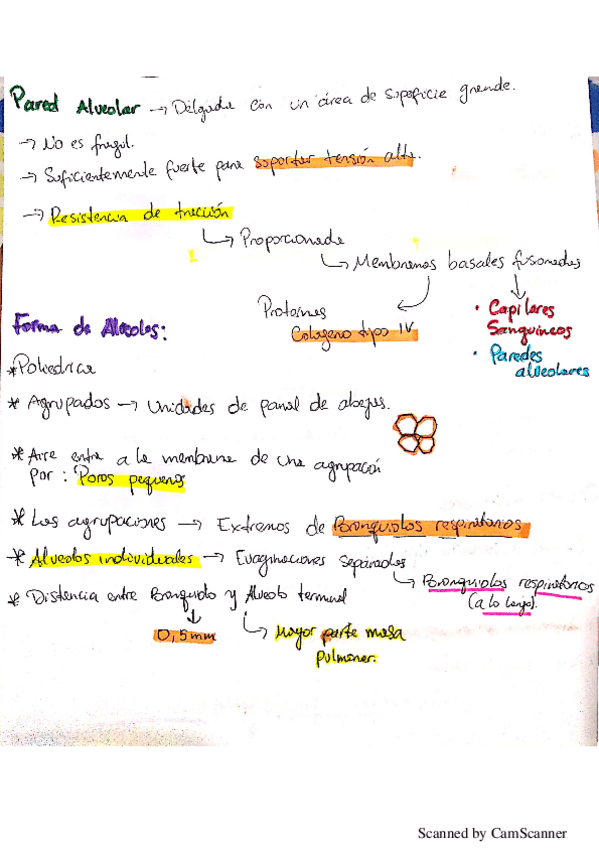 Pared Alveolar → Delgada con un área de superficie grande.
→ No es fragil.
→ Suficientemente fuerte para soportar tensión alta.
→ Resistencia de tracción
↳ Proporcionada
↳ Membranas basales fusionadas
Proteínas
Colageno tipo IV
• Capilares Sanguineos
• Paredes alveolares
Forma de Alveolos:
* Poliedrica
* Agrupados → Unidades de panal de abejas.
* Aire entra a la membrana de una agrupación
por: Poros pequeños
* Las agrupaciones → Extremos de Bronquiolos respiratorios
* Alveolos individuales → Evaginaciones separadas
↳ Bronquiolos respiratorios
(a lo largo).
* Distancia entre Bronquiolo y Alveolo terminal
0,5mm
↳ Mayor parte masa
pulmonar.
Scanned by CamScanner